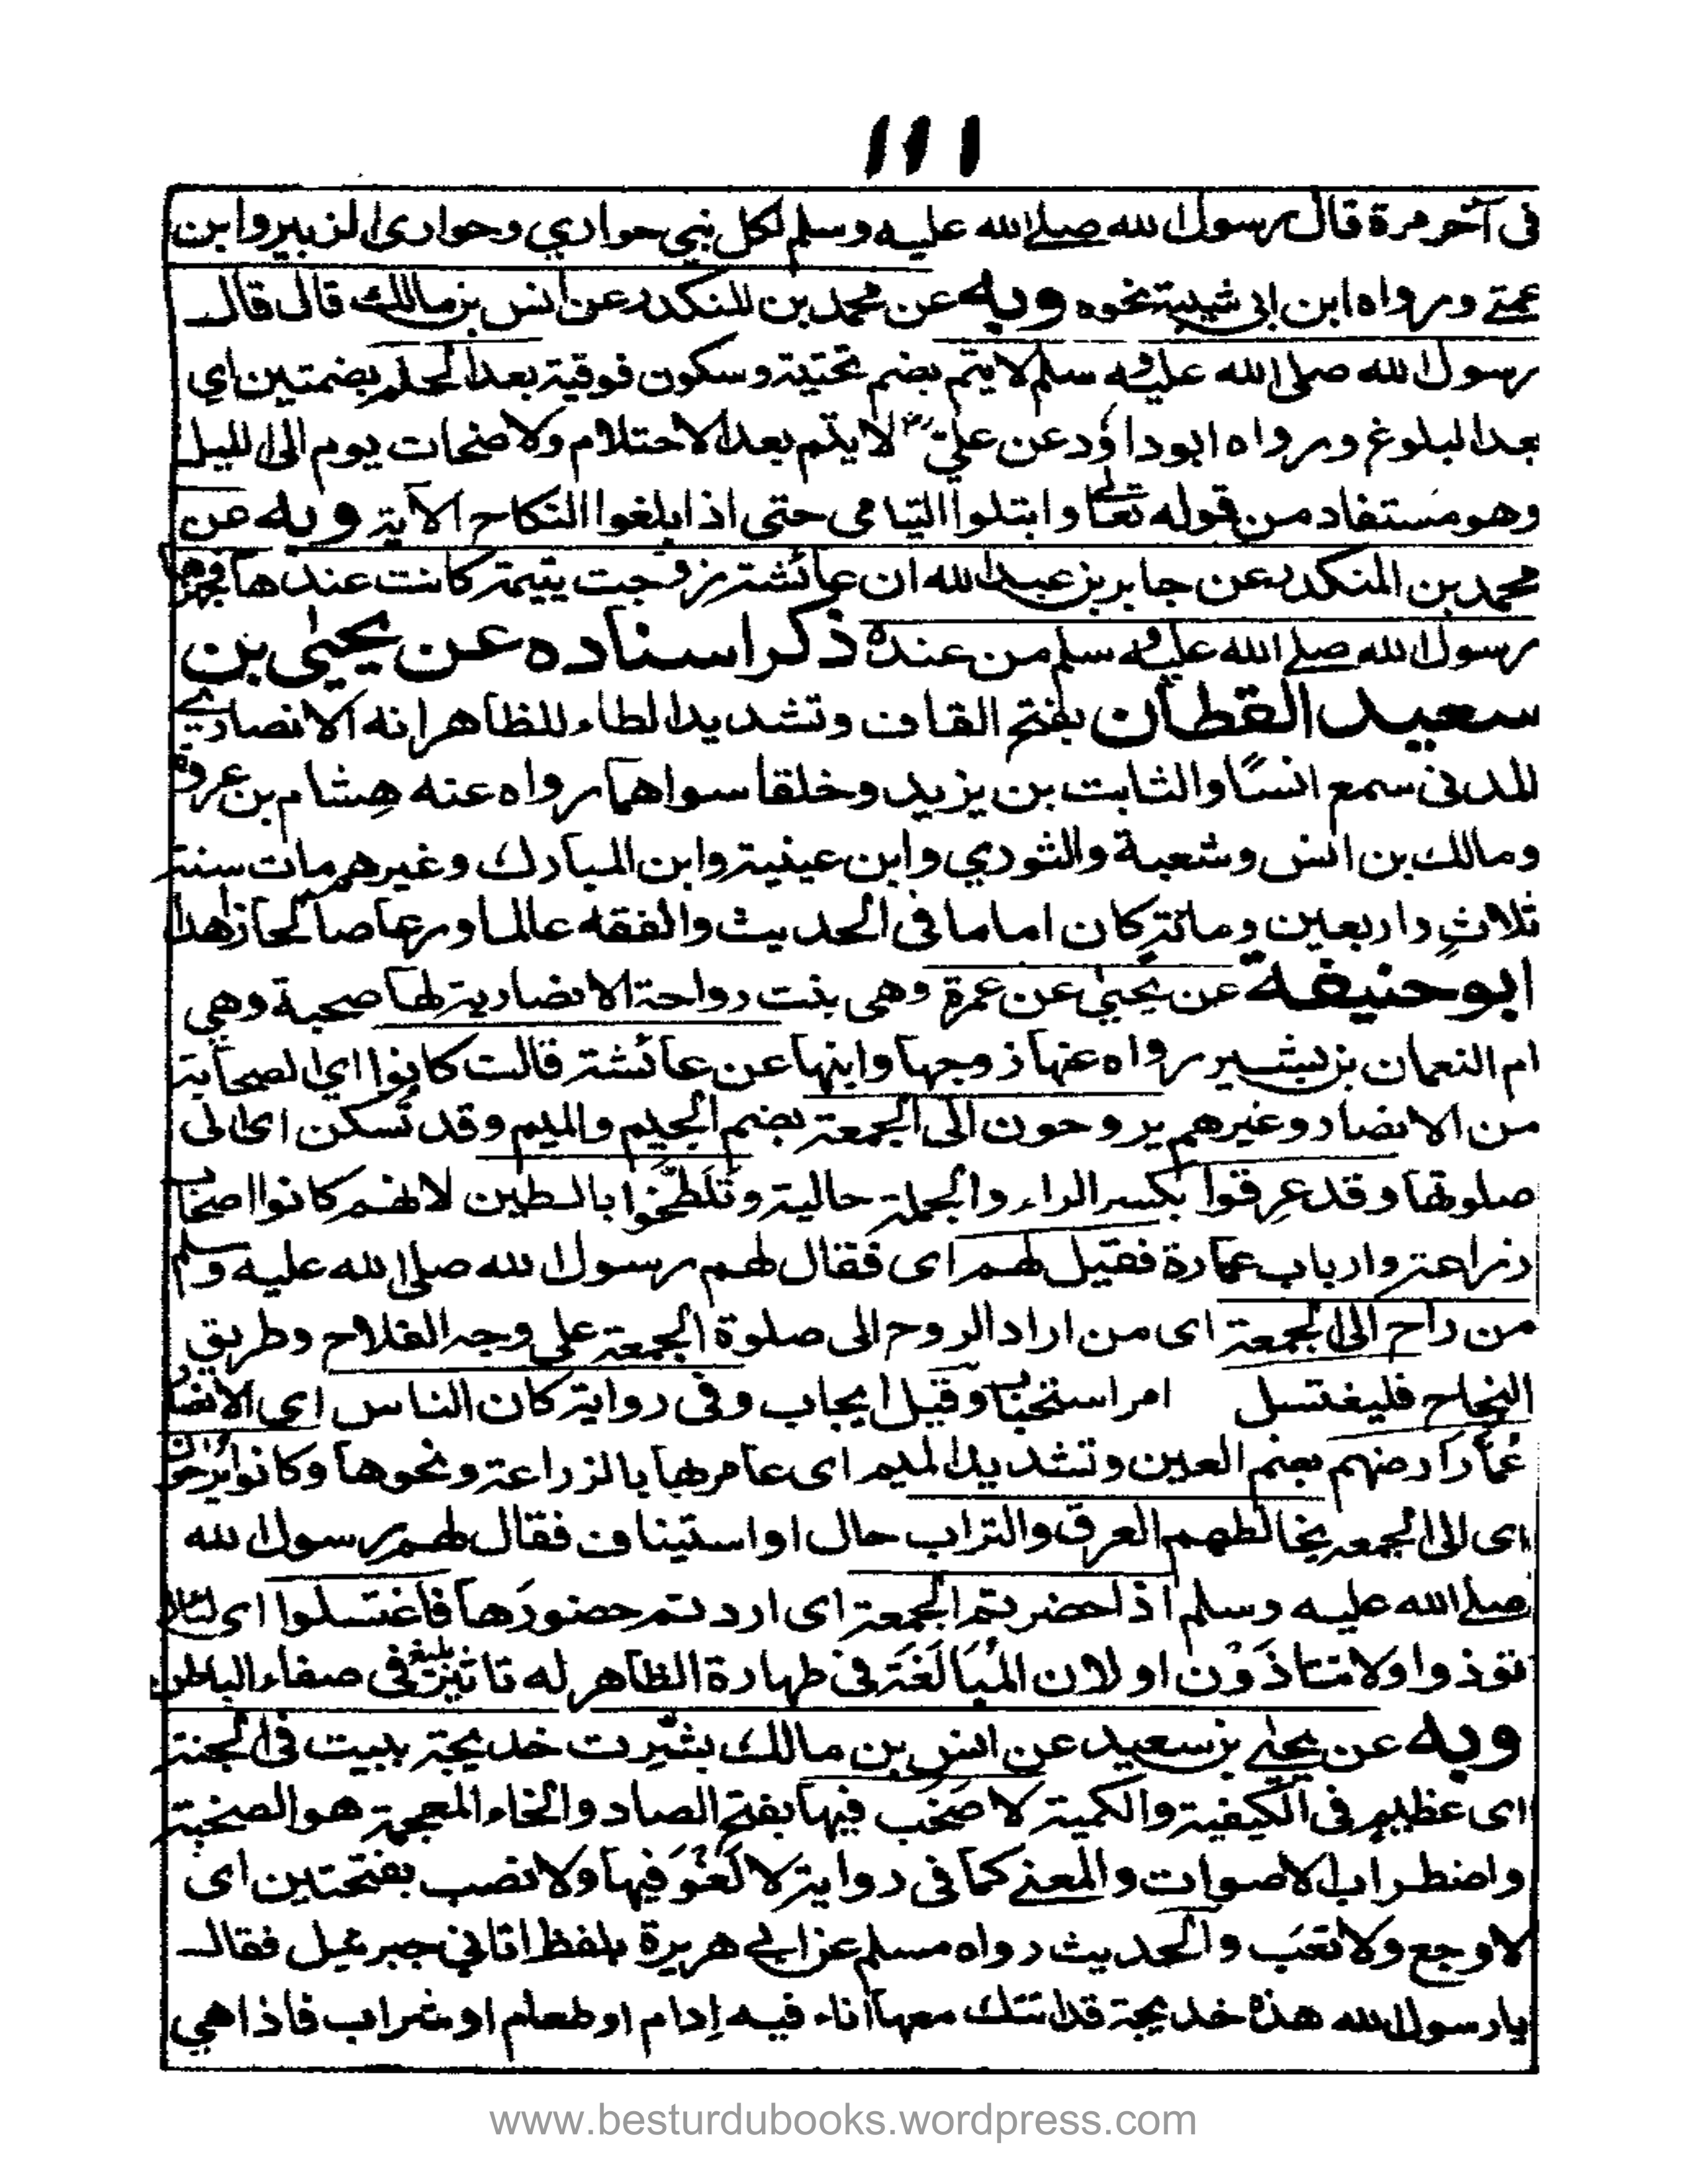 ١١١
فى آخر مرة قال رسول الله صلى الله عليه وسلم لكل نبي حواري وحوارى الزبير وابن
عمتى ورواه ابن ابى شيبة نحوه وبه عن محمد بن المنكدر عن انس بن مالك قال قال
رسول الله صلى الله عليه وسلم لا يتم بضم تحتية وسكون فوقية بعد الحلم بضمتين اي
بعد البلوغ ورواه ابوداؤد عن علي رض لا يتم بعد الاحتلام ولا صمات يوم الى الليل
وهو مستفاد من قوله تعالى وابتلوا اليتامى حتى اذا بلغوا النكاح الآية وبه عن
محمد بن المنكدر عن جابر بن عبد الله ان عائشة زوجت يتيمة كانت عندها فجهزها
رسول الله صلى الله عليه وسلم من عنده ذكر اسناده عن يحيىٰ بن
سعيد القطان بفتح القاف وتشديد الطاء للظاهر انه الانصاري
المدنى سمع انسًا والثابت بن يزيد وخلقا سواهما رواه عنه هشام بن عروة
ومالك بن انس وشعبة والثوري وابن عينية وابن المبارك وغيرهم مات سنة
ثلاثٍ واربعين ومائة كان اماما فى الحديث والفقه عالما ورعا صالحا زاهدا
ابو حنيفة عن يحيىٰ عن عمرة وهى بنت رواحة الانصارية لها صحبة وهي
ام النعمان بن بشير رواه عنها زوجها وابنها عن عائشة قالت كانوا اي الصحابة
من الانصار وغيرهم يروحون الى الجمعة بضم الجيم والميم وقد تسكن اى الى
صلوتها وقد عرقوا بكسر الراء والجملة حالية وتَلَطَّخوا بالطين لانهم كانوا اصحاب
زراعة وارباب عمارة فقيل لهم اى فقال لهم رسول الله صلى الله عليه وسلم
من راح الى الجمعة اى من اراد الروح الى صلوة الجمعة على وجه الفلاح وطريق
النجاح فليغتسل امر استحباب وقيل ايجاب وفى رواية كان الناس اي الانصار
عُمّار ارضهم بضم العين وتشديد الميم اى عامريها بالزراعة ونحوها وكانوا يروحون
اى الى الجمعة يخالطهم العرق والتراب حال او استيناف فقال لهم رسول الله
صلى الله عليه وسلم اذا حضرتم الجمعة اى اردتم حضورها فاغتسلوا اى لئلا
توذوا ولا متاذون او لان المُبَالَغَة فى طهارة الظاهر له تاثير بليغ فى صفاء الباطن
وبه عن يحيى بن سعيد عن انس بن مالك بشّرت خديجة ببيت فى الجنة
اى عظيم فى الكيفية والكمية لا صَخَب فيها بفتح الصاد والخاء المعجمة هو الصخبة
واضطراب الاصوات والمعنى كما فى رواية لا لَغْوَ فيها ولا نصب بفتحتين اى
لا وجع ولا تعَب والحديث رواه مسلم عن ابي هريرة بلفظ اتاني جبرئيل فقال
يا رسول الله هذه خديجة قد اتتك معها اناء فيه اِدام او طعام او شراب فاذا هي
www.besturdubooks.wordpress.com